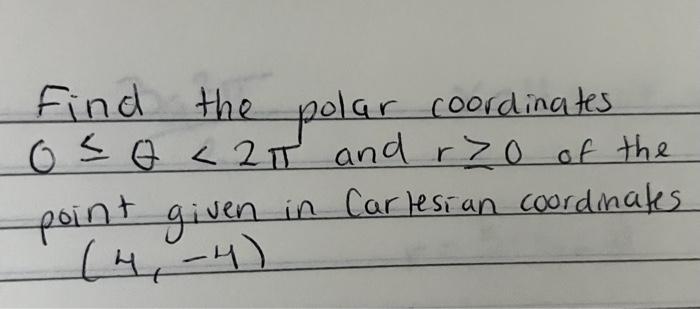 Find the polar coordinates
0 ≤ θ < 2π and r ≥ 0 of the
point given in Cartesian coordinates
(4, -4)